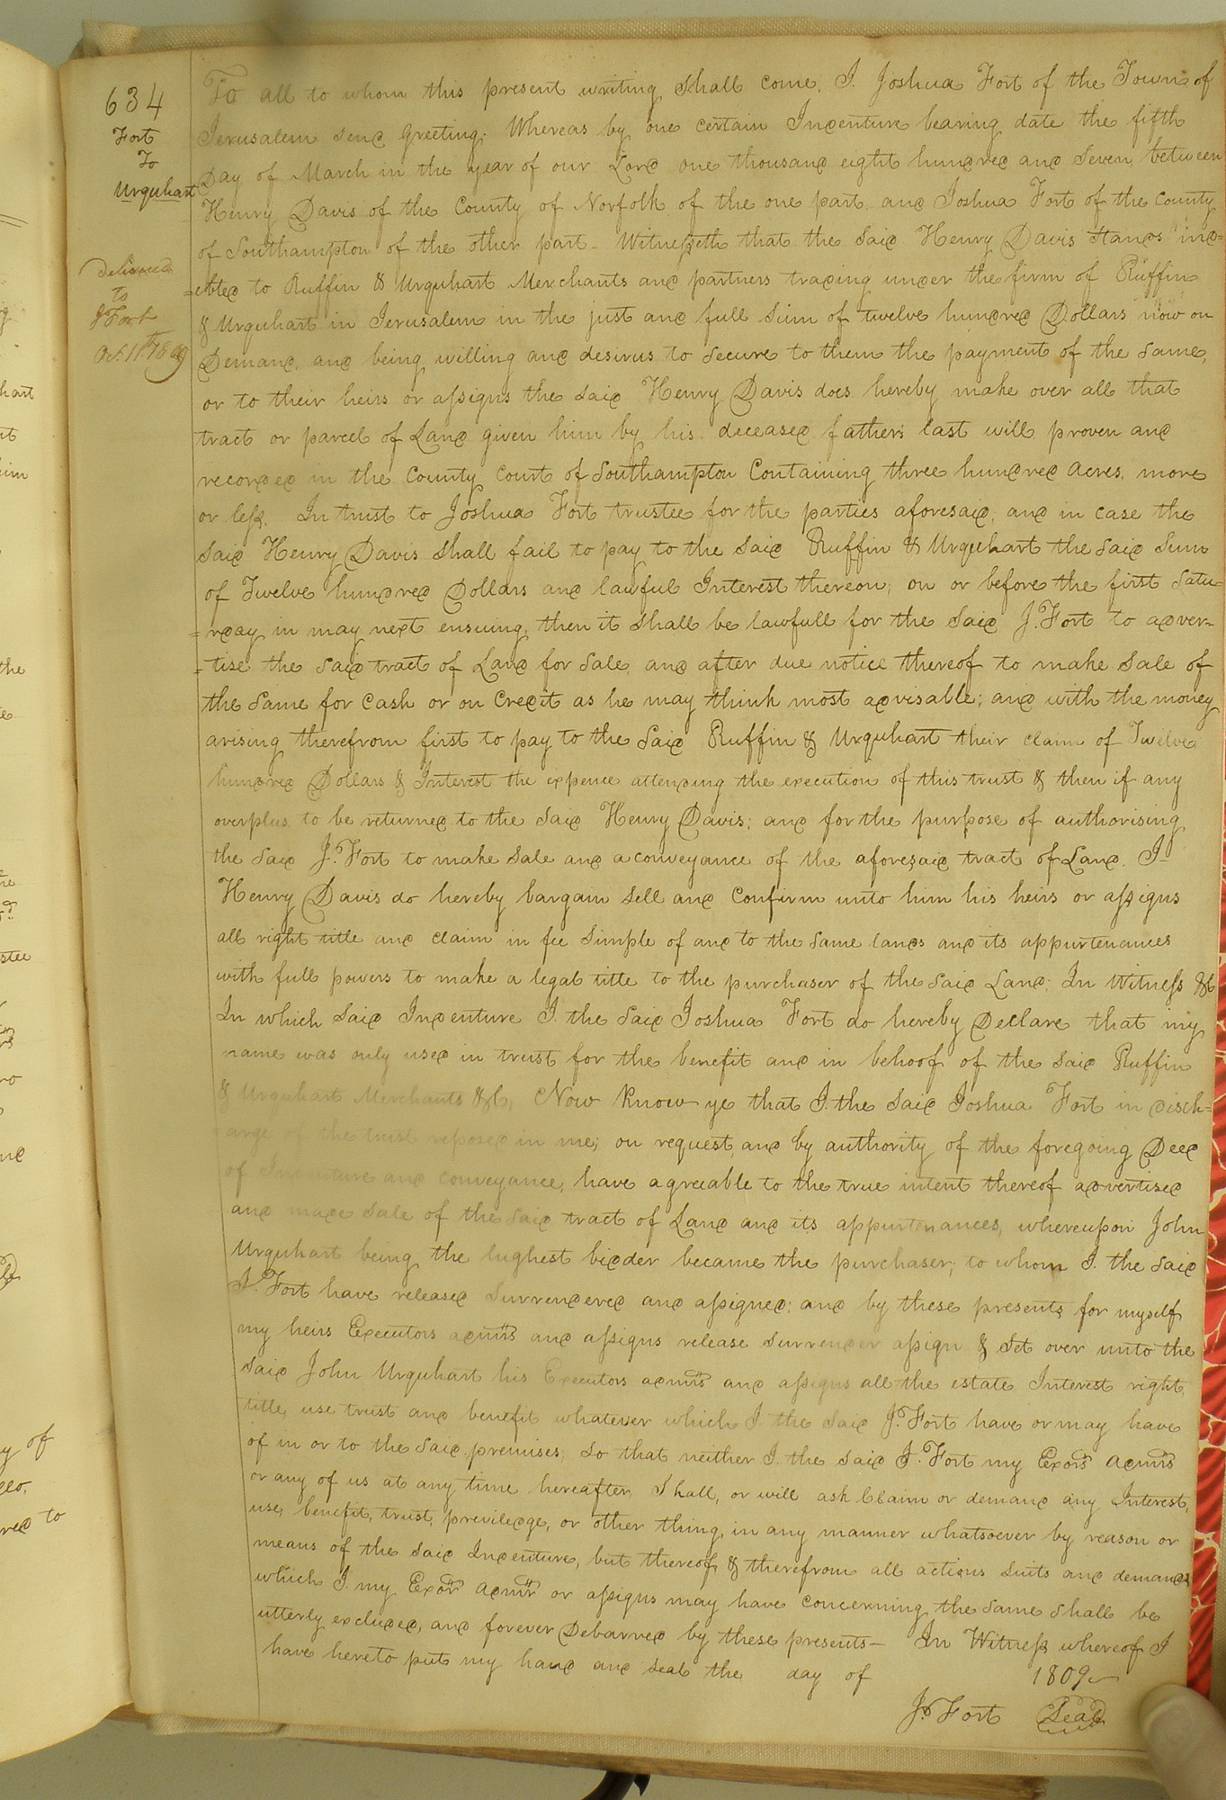 634
Fort
To
Urquhart
Delivered
to
J Fort
Oct. 11th 1809
To all to whom this present writing shall come, I Joshua Fort of the Town of
Jerusalem send greeting; Whereas by one certain Indenture bearing date the fifth
Day of March in the year of our Lord one thousand eight hundred and seven, between
Henry Davis of the County of Norfolk of the one part and Joshua Fort of the County
of Southampton of the other part - Witnesseth that the said Henry Davis stands ind-
=ebted to Ruffin & Urquhart Merchants and partners trading under the firm of Ruffin
& Urquhart in Jerusalem in the just and full sum of twelve hundred Dollars now on
Demand, and being willing and desirus to secure to them the payment of the same,
or to their heirs or assigns the said Henry Davis does hereby make over all that
tract or parcel of Land given him by his deceased fathers last will proven and
recorded in the County Court of Southampton Containing three hundred acres, more
or less. In trust to Joshua Fort trustee for the parties aforesaid; and in case the
said Henry Davis shall fail to pay to the said Ruffin & Urquhart the said sum
of Twelve hundred Dollars and lawful Interest thereon; on or before the first Satu-
=rday in may next ensuing, then it shall be lawfull for the said J. Fort to adver-
=tise the said tract of Land for sale, and after due notice thereof to make sale of
the same for cash or on Credit as he may think most advisable; and with the money
arising therefrom first to pay to the said Ruffin & Urquhart their claim of Twelve
hundred Dollars & Interest the expence attending the execution of this trust & then if any
overplus to be returned to the said Henry Davis; and for the purpose of authorising
the said J. Fort to make sale and a conveyance of the aforesaid tract of Land. I
Henry Davis do hereby bargain sell and Confirm unto him his heirs or assigns
all right title and claim in fee simple of and to the same lands and its appurtenances
with full powers to make a legal title to the purchaser of the said Land; In Witness &c
In which said Indenture I the said Joshua Fort do hereby Declare that my
name was only used in trust for the benefit and in behoof of the said Ruffin
& Urquhart Merchants &c, Now Know ye that I the said Joshua Fort in disch-
arge of the trust reposed in me; on request and by authority of the foregoing Deed
of Indenture and conveyance, have agreeable to the true intent thereof advertised
and made sale of the said tract of Land and its appurtenances, whereupon John
Urquhart being the highest bidder became the purchaser; to whom I the said
J. Fort have released surrendered and assigned; and by these presents for myself
my heirs Executors admrs and assigns release surrender assign & set over unto the
said John Urquhart his Executors admrs and assigns all the estate Interest right,
title, use trust and benefit whatever which I the said J. Fort have or may have
of in or to the said premises; so that neither I the said J. Fort my Exors admrs
or any of us at any time hereafter Shall, or will ask Claim or demand any Interest,
use, benefit, trust, previledge, or other thing in any manner whatsoever by reason or
means of the said Indenture, but thereof & therefrom all actions suits and demands
which I my Exors admrs or assigns may have concerning the same shall be
utterly excluded, and forever Debarred by these presents - In Witness whereof I
have hereto put my hand and seal the day of 1809
Js. Fort Seal